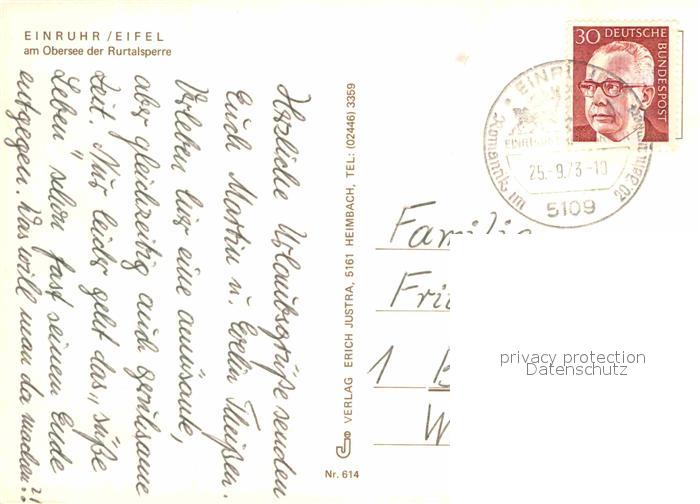 EINRUHR / EIFEL
am Obersee der Rurtalsperre
Herzliche Urlaubsgrüße senden
Euch Martin u. Evelin Theißen.
Verleben hier eine amüsante,
aber gleichzeitig auch geruhsame
Zeit. Nur leider geht das „süße
Leben" schon fast seinem Ende
entgegen. Was will man da machen?!
VERLAG ERICH JUSTRA, 5161 HEIMBACH, TEL: (02446) 3359
Nr. 614
30 DEUTSCHE
BUNDESPOST
EINRUHR
25.-9.73-10
5109
Romantik im
Familie
1 B
W
privacy protection
Datenschutz